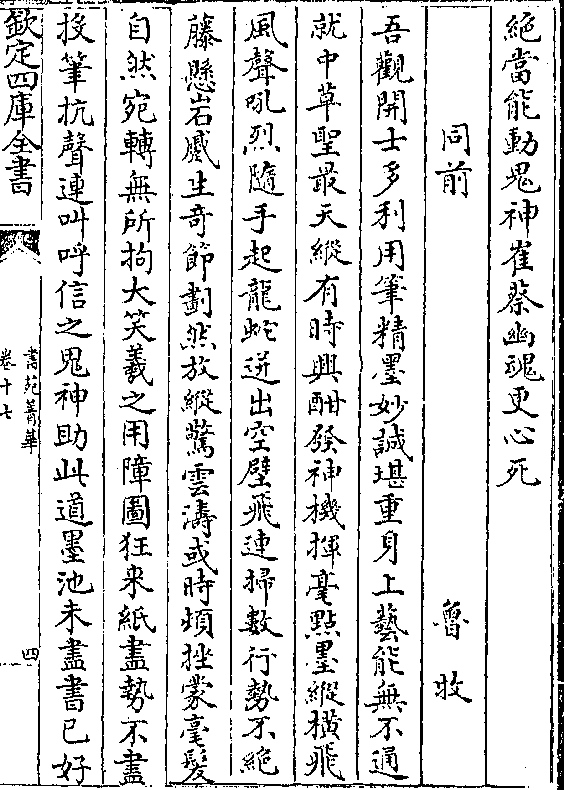 絶當能動鬼神崔蔡幽魂更心死
同前 魯收
吾觀開士多利用筆精墨妙誠堪重身上藝能無不通
就中草聖最天縱有時興酣發神機揮毫點墨縱橫飛
風聲吼烈隨手起龍蛇迸出空壁飛連掃數行勢不絶
藤懸岩蹙生奇節劃然放縱驚雲濤或時頓挫縈毫髪
自然宛轉無所拘大笑羲之用障圖狂来紙盡勢不盡
投筆抗聲連叫呼信之鬼神助此道墨池未盡書已好
欽定四庫全書
書苑菁華
卷十七
四